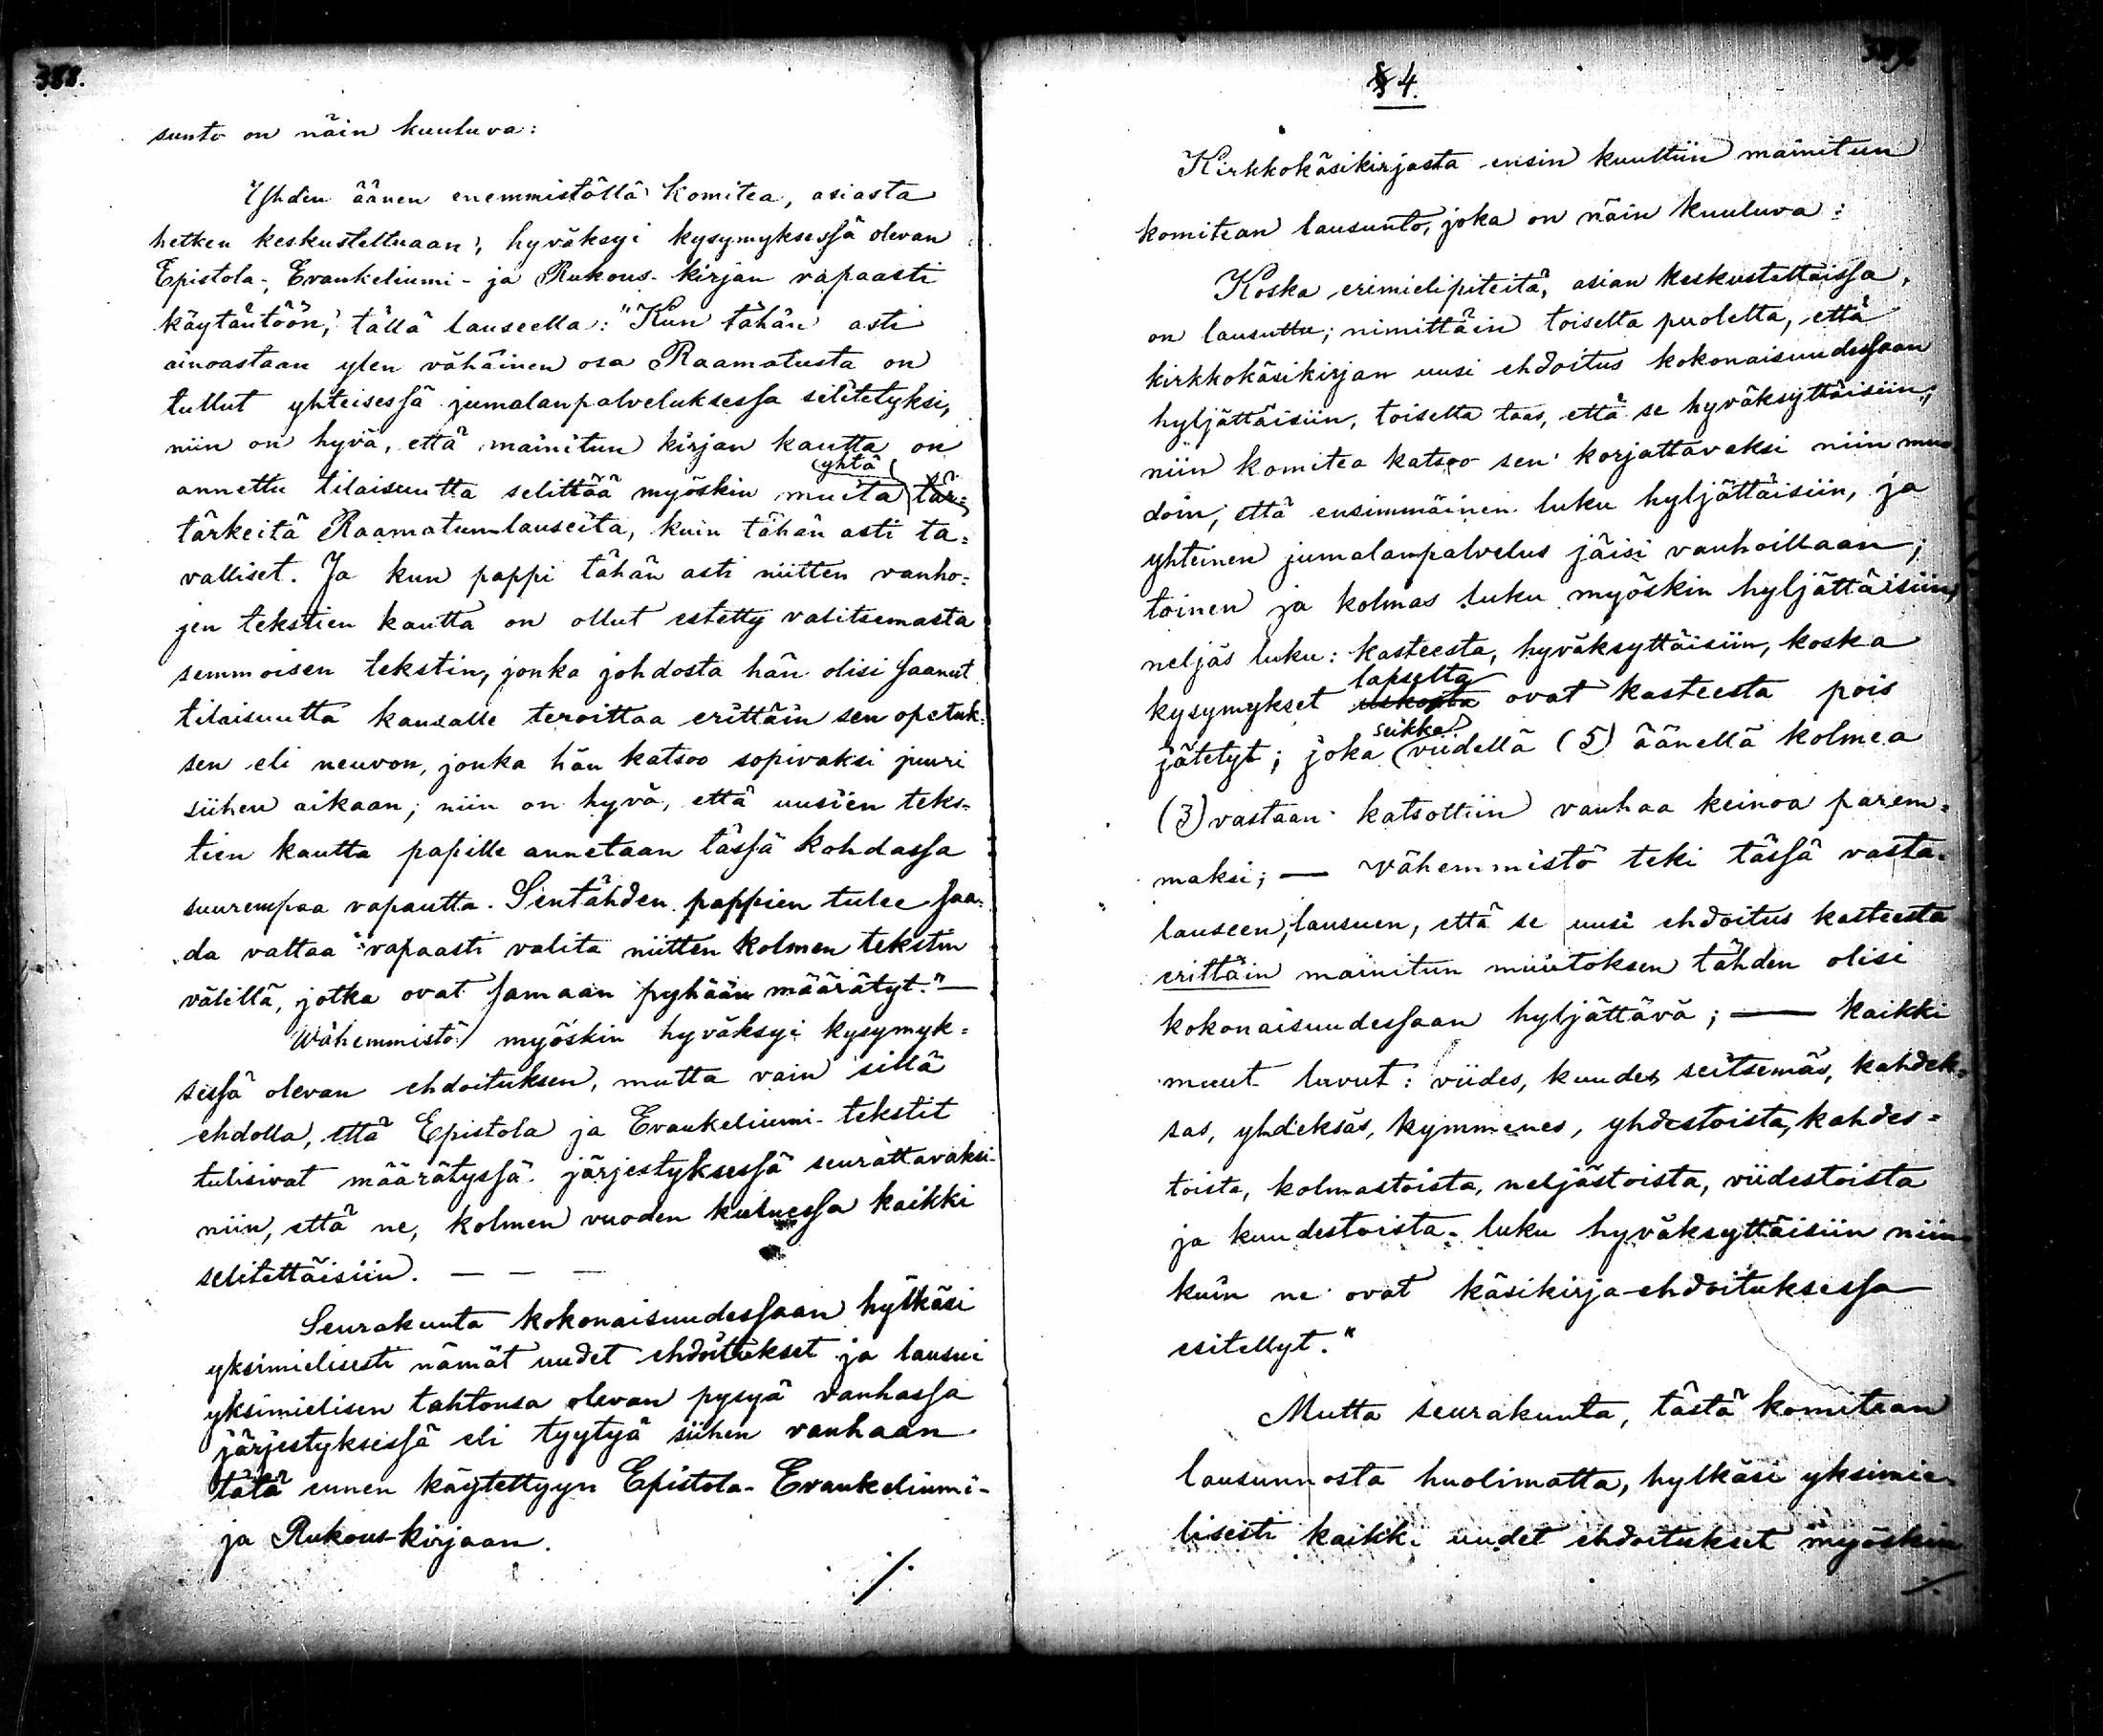 388.
sunto on näin kuuluva:
Yhden äänen enemmistöllä Komitea, asiasta
hetken keskusteltuaan, hyväksyi kysymyksessä olevan
Epistola-, Evankeliumi- ja Rukous-kirjan vapaasti
käytäntöön, tällä lauseella: "Kun tähän asti
ainoastaan ylen vähäinen osa Raamatusta on
tullut yhteisessä jumalanpalveluksessa selitetyksi,
niin on hyvä, että mainitun kirjan kautta on
yhtä
annettu tilaisuutta selittää myöskin muita tär=
tärkeitä Raamatun lauseita, kuin tähän asti ta=
valliset. Ja kun pappi tähän asti niitten vanho=
jen tekstien kautta on ollut estetty valitsemasta
semmoisen tekstin, jonka johdosta hän olisi saanut
tilaisuutta kansalle teroittaa erittäin sen opetuk=
sen eli neuvon, jonka hän katsoo sopivaksi juuri
siihen aikaan; niin on hyvä, että uusien teks=
tien kautta papille annetaan tässä kohdassa
suurempaa vapautta. Sentähden pappien tulee saa=
da valtaa vapaasti valita niitten kolmen tekstin
välillä, jotka ovat samaan pyhään määrätyt." —
Wähemmistö myöskin hyväksyi kysymyk=
sessä olevan ehdoituksen, mutta vain sillä
ehdolla, että Epistola ja Evankeliumi-tekstit
tulisivat määrätyssä järjestyksessä seurattavaksi
niin, että ne, kolmen vuoden kuluessa kaikki
selitettäisiin. — — —
Seurakunta kokonaisuudessaan hylkäsi
yksimielisesti nämät uudet ehdoitukset ja lausui
yksimielisen tahtonsa olevan pysyä vanhassa
järjestyksessä eli tyytyä siihen vanhaan
tätä ennen käytettyyn Epistola- Evankeliumi-
ja Rukous-kirjaan.
./.
§ 4.
Kirkkokäsikirjasta ensin kuultiin mainitun
komitean lausunto, joka on näin kuuluva:
Koska erimielipiteitä, asian keskusteltaissa,
on lausuttu; nimittäin toiselta puolelta, että
kirkkokäsikirjan uusi ehdoitus kokonaisuudessaan
hyljättäisiin, toiselta taas, että se hyväksyttäisiin;
niin komitea katsoo sen korjattavaksi niin muo
doin, että ensimmäinen luku hyljättäisiin, ja
yhteinen jumalanpalvelus jäisi vanhoillaan;
toinen ja kolmas luku myöskin hyljättäisiin,
neljäs luku: kasteesta, hyväksyttäisiin, koska
lapselta
kysymykset uskosta ovat kasteesta pois
seikka
jätetyt; joka viidellä (5) äänellä kolmea
(3) vastaan katsottiin vanhaa keinoa parem=
maksi; — vähemmistö teki tässä vasta=
lauseen, lausuen, että se uusi ehdoitus kasteesta
erittäin mainitun muutoksen tähden olisi
kokonaisuudessaan hyljättävä; — kaikki
muut luvut: viides, kuudes, seitsemäs, kahdek=
sas, yhdeksäs, kymmenes, yhdestoista, kahdes=
toista, kolmastoista, neljästoista, viidestoista
ja kuudestoista luku hyväksyttäisiin niin
kuin ne ovat käsikirja-ehdoituksessa
esitellyt."
Mutta seurakunta, tästä komitean
lausunnosta huolimatta, hylkäsi yksimie
lisesti kaikki uudet ehdoitukset myöskin
./.